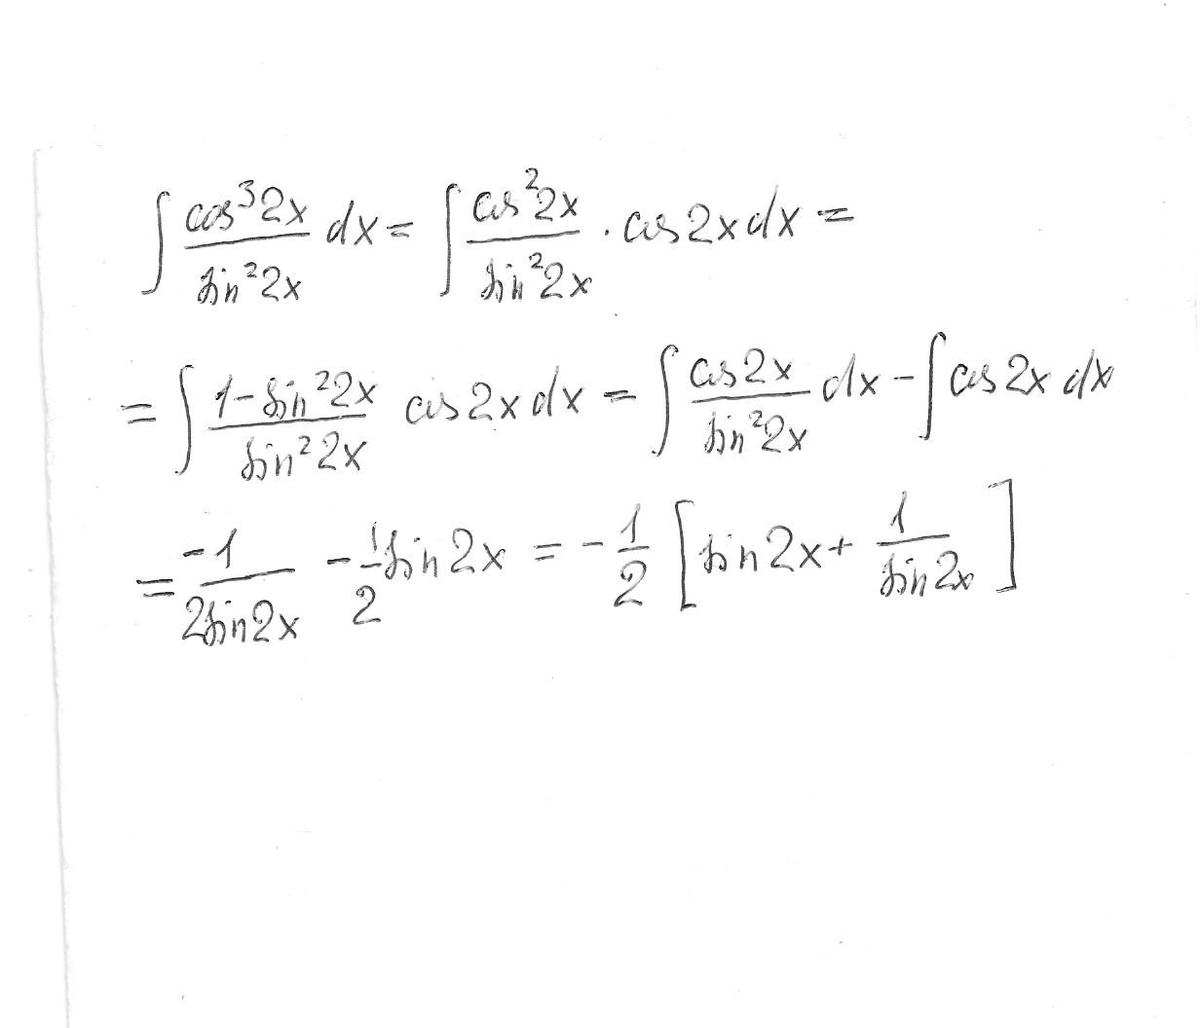 ∫ cos³2x / sin²2x dx = ∫ cos²2x / sin²2x · cos2xdx =
= ∫ 1-sin²2x / sin²2x cos2xdx = ∫ cos2x / sin²2x dx - ∫ cos2x dx
= -1 / 2sin2x - 1/2 sin2x = - 1/2 [ sin2x + 1 / sin2x ]